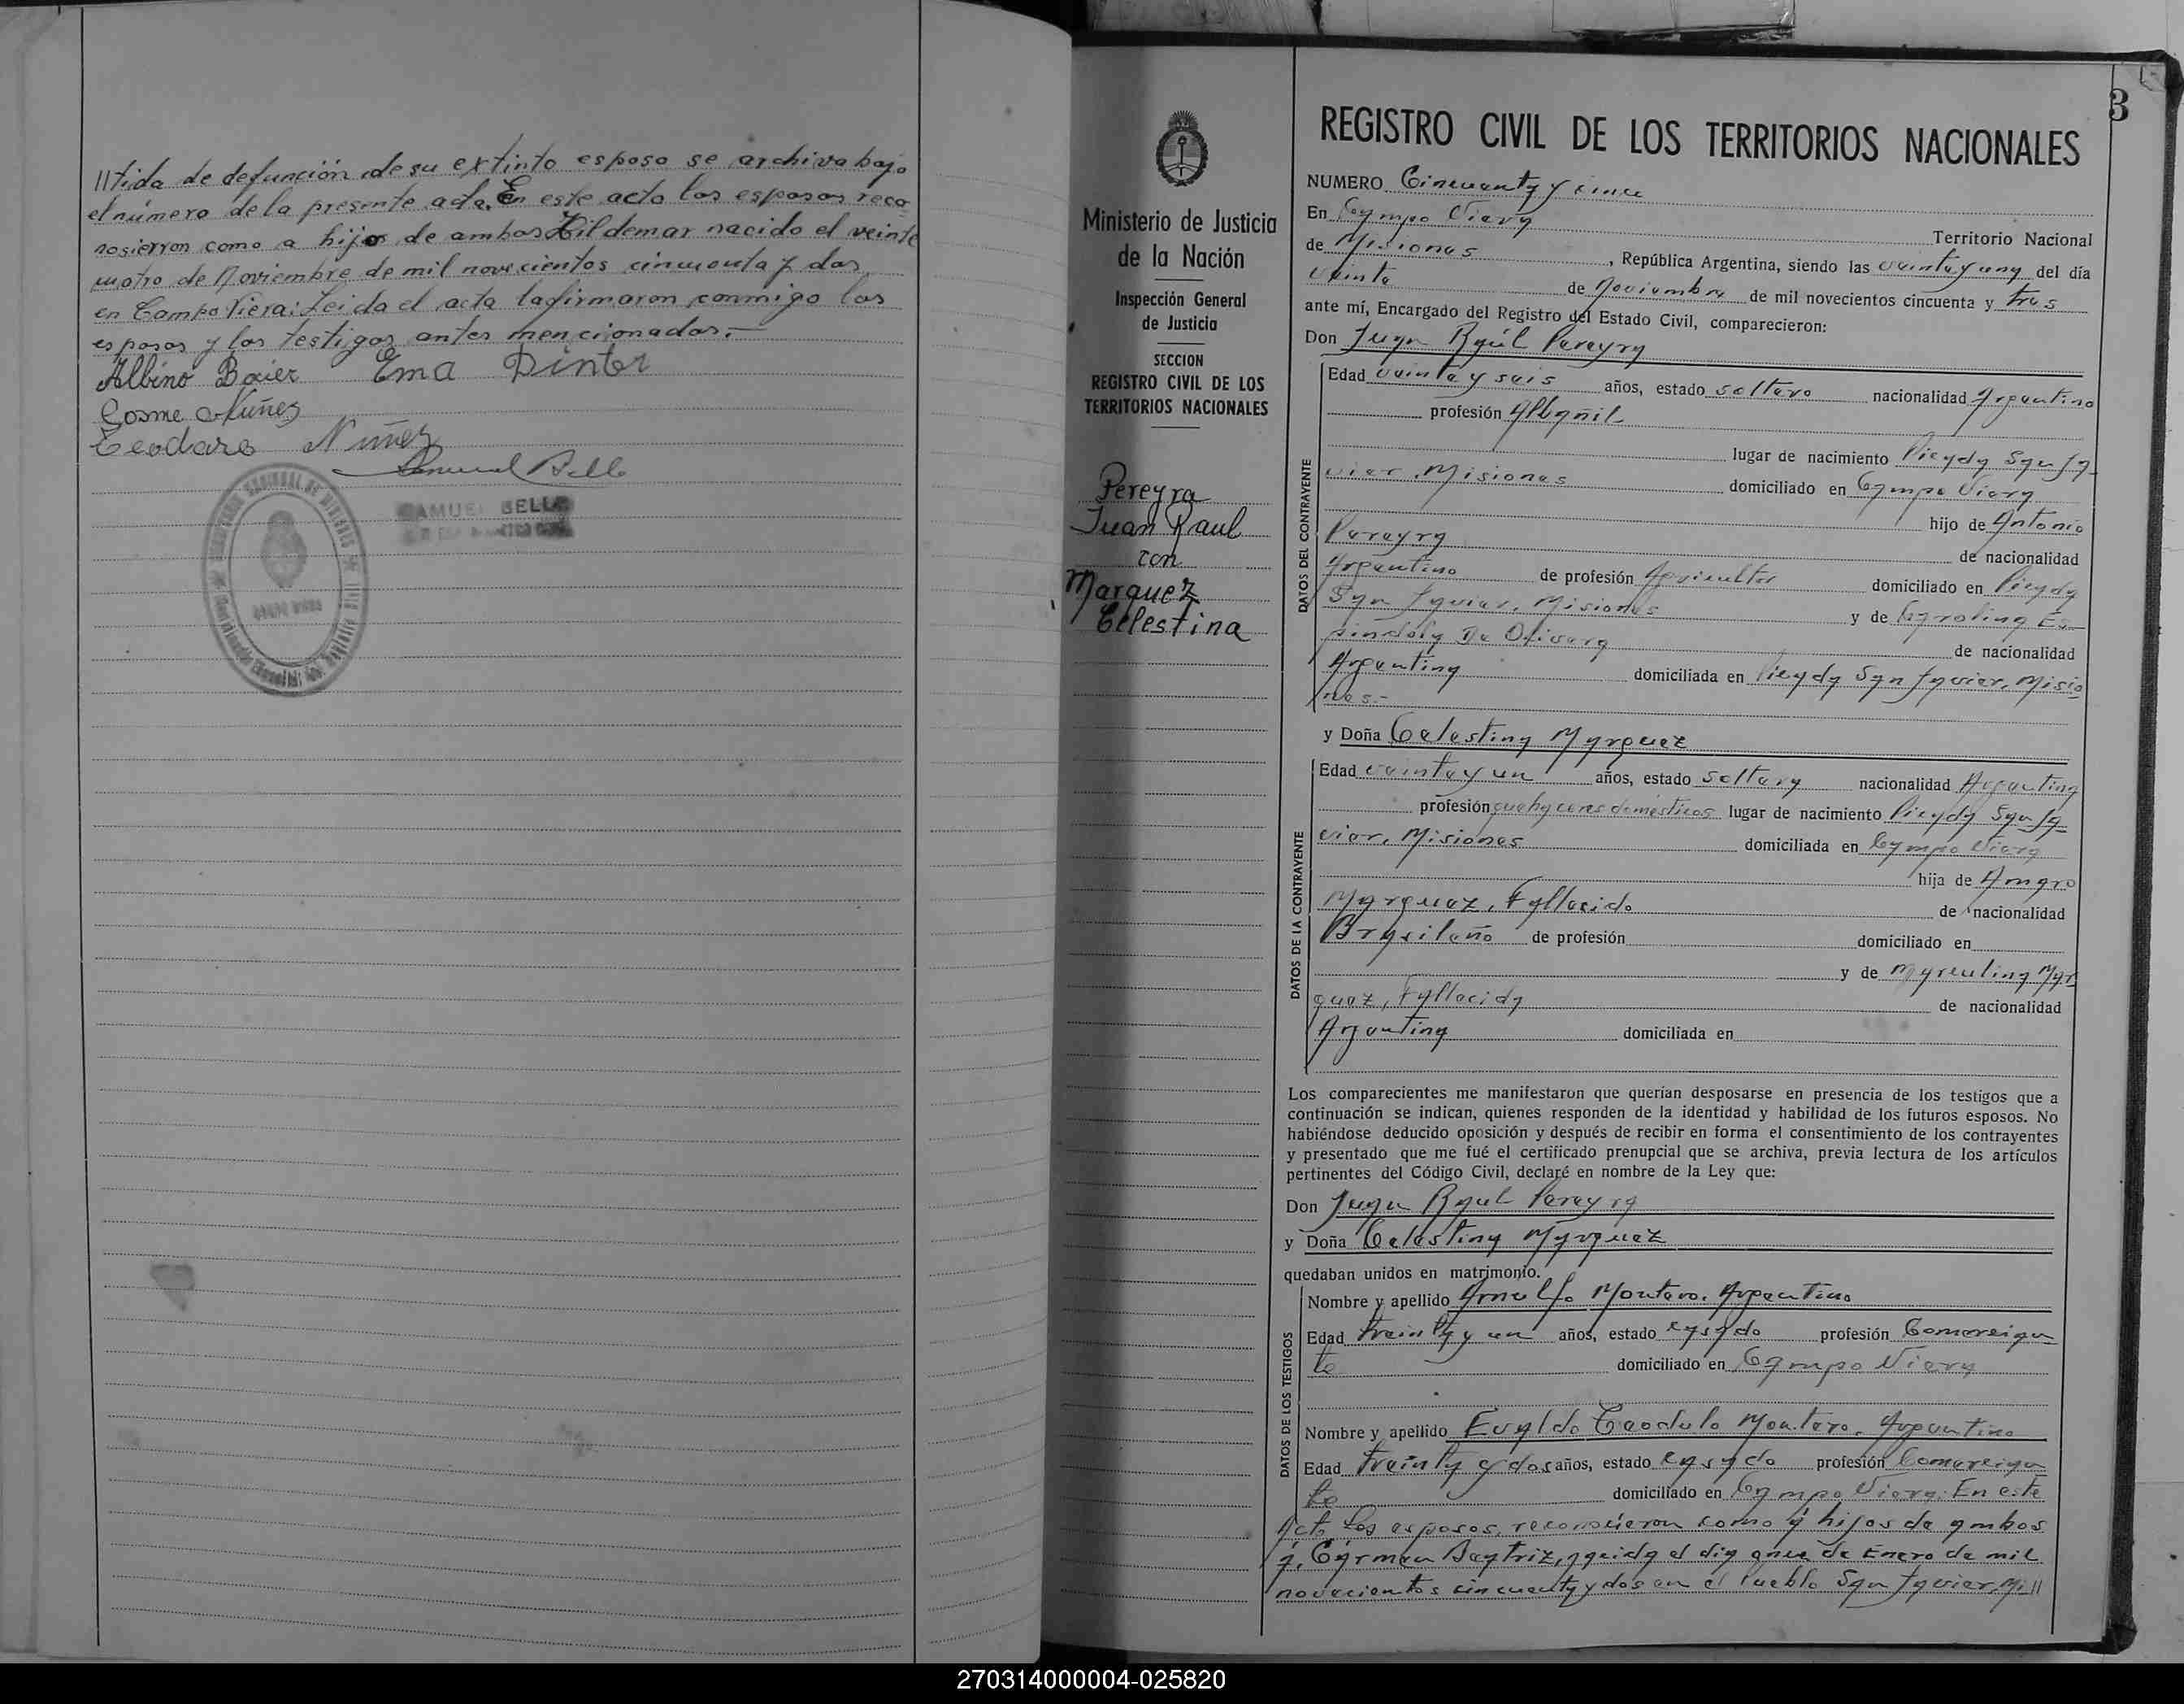 //tida de defunción de su extinto esposo se archiva bajo
el número de la presente acta. En este acto los esposos reco-
nosierron como a hijos de ambos Hildemar nacido el veinte
cuatro de Noviembre de mil novecientos cincuenta y dos
en Campo Viera: Leida el acta la firmaron conmigo los
esposos y los testigos antes mencionados.-
Albino Baier Ema Dinter
Cosme Nuñez
Teodoro Nuñez
Samuel Bello
SAMUEL BELLO
3
Ministerio de Justicia
de la Nación
Inspección General
de Justicia
SECCION
REGISTRO CIVIL DE LOS
TERRITORIOS NACIONALES
Pereyra
Juan Raul
con
Marquez
Celestina
REGISTRO CIVIL DE LOS TERRITORIOS NACIONALES
NUMERO Cincuenta y cinco
En Campo Viera Territorio Nacional
de Misiones, República Argentina, siendo las veinte y una del día
veinte de Noviembre de mil novecientos cincuenta y tres
ante mí, Encargado del Registro del Estado Civil, comparecieron:
Don Juan Raúl Pereyra
DATOS DEL CONTRAYENTE
Edad veinte y seis años, estado soltero nacionalidad Argentino
profesión Albañil
lugar de nacimiento Picada San Ja-
vier, Misiones domiciliado en Campo Viera
hijo de Antonio
Pereyra de nacionalidad
Argentino de profesión Agricultor domiciliado en Picada
San Javier, Misiones y de Carolina Es-
pindola De Olivera de nacionalidad
Argentina domiciliada en Picada San Javier, Misio
nes.-
y Doña Celestina Marquez
DATOS DE LA CONTRAYENTE
Edad veinte y un años, estado soltera nacionalidad Argentina
profesión quehaceres domésticos lugar de nacimiento Picada San Ja
vier, Misiones domiciliada en Campo Viera
hija de Amaro
Marquez, Fallecido de nacionalidad
Brasileño de profesión domiciliado en
y de Marculina Mar
quez, Fallecida de nacionalidad
Argentina domiciliada en
Los comparecientes me manifestaron que querían desposarse en presencia de los testigos que a
continuación se indican, quienes responden de la identidad y habilidad de los futuros esposos. No
habiéndose deducido oposición y después de recibir en forma el consentimiento de los contrayentes
y presentado que me fué el certificado prenupcial que se archiva, previa lectura de los artículos
pertinentes del Código Civil, declaré en nombre de la Ley que:
Don Juan Raul Pereyra
y Doña Celestina Marquez
quedaban unidos en matrimonio.
DATOS DE LOS TESTIGOS
Nombre y apellido Arnulfo Montero. Argentino
Edad treinta y un años, estado casado profesión Comercian
te domiciliado en Campo Viera
Nombre y apellido Evaldo Teodulo Montero. Argentino
Edad treinta y dos años, estado casado profesión Comercian
te domiciliado en Campo Viera: En este
Acto los esposos, reconocieron como á hijos de ambos
á, Cármen Beatriz, nacida el dia once de Enero de mil
novecientos cincuenta y dos en el Pueblo San Javier, Mi//
270314000004-025820